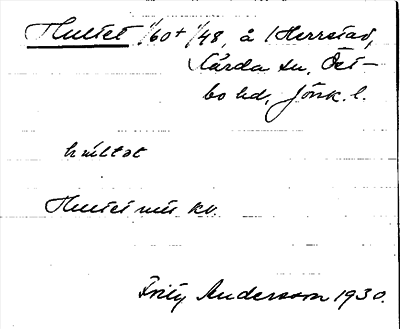 Hultet 1/60 + 1/48, å 1 Herrstad,
Kärda sn, Öst-
bo hd, Jönk. l.
hultat
Hultet nu kv.
Fritz Andersson 1930.